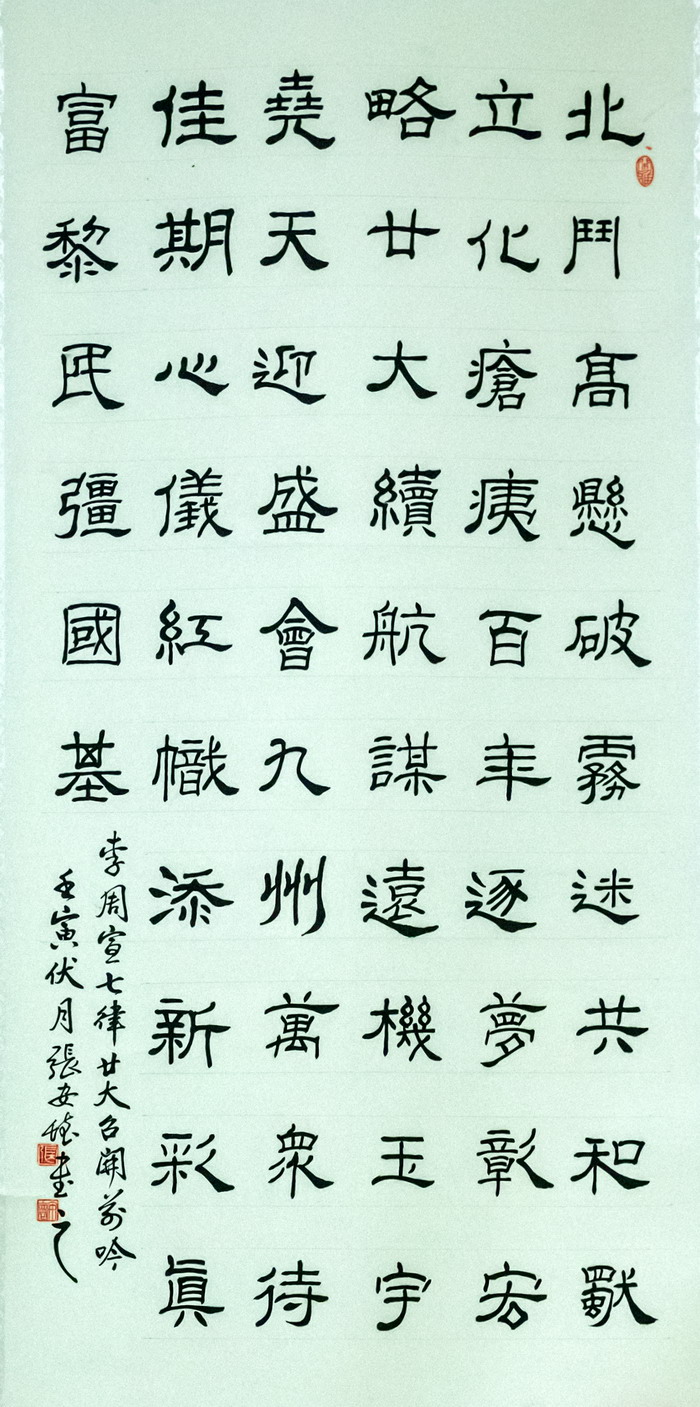 北鬥髙懸破霧迷共和獨
立化瘡痍百年逐夢彰宏
略廿大續航謀遠機玉宇
堯天迎盛會九州萬衆待
佳期心儀紅幟添新彩眞
富黎民彊國基
李周宣七律廿大召開前吟
壬寅伏月張安書之